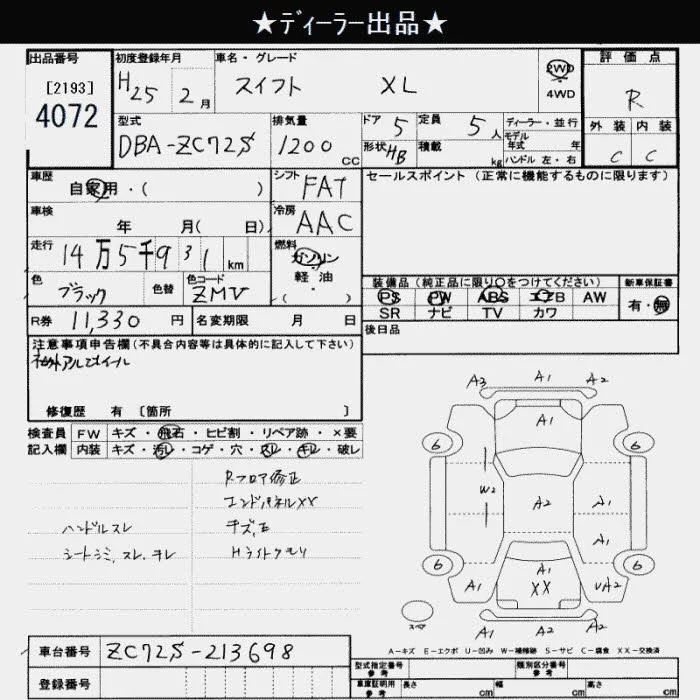 ★ディーラー出品★
出品番号
[2193]
4072
初度登録年月
H25 2月
車名・グレード
スイフト XL
2WD
4WD
評価点
R
外装 内装
C C
型式
DBA-ZC72S
排気量
1200 CC
ドア 5
形状 HB
定員 5人
積載 kg
ディーラー・並行
モデル年式 年
ハンドル 左・右
車歴
自家用・( )
シフト
FAT
セールスポイント(正常に機能するものに限ります)
車検
年 月( 日)
冷房
AAC
走行
14万5千931km
燃料
ガソリン・軽油・( )
色
ブラック
色替
色コード
ZMV
装備品(純正品に限り○をつけてください)
PS PW ABS エアB AW
SR ナビ TV カワ
新車保証書
有・無
R券 11,330円
名変期限 月 日
後日品
注意事項申告欄(不具合内容等は具体的に記入して下さい)
社外アルミホイール
修復歴 有 [箇所 ]
検査員記入欄
FW キズ・飛石・ヒビ割・リペア跡・×要
内装 キズ・汚レ・コゲ・穴・スレ・キレ・破レ
Rフロア修正
エンドパネルXX
ハンドルスレ
シートシミ,スレ,キレ
Hライトクモリ
A3 A1 A2
A1
6 6
W2
A2 A1
A1
6 6
A1 XX UA2
A1 A2 A2
スペア
A-キズ E-エクボ U-凹み W-補修跡 S-サビ C-腐食 XX-交換済
車台番号 ZC72S-213698
登録番号
型式指定番号 参考
類別区分番号 参考
車庫証明用 参考 長さ cm 幅 cm 高さ cm